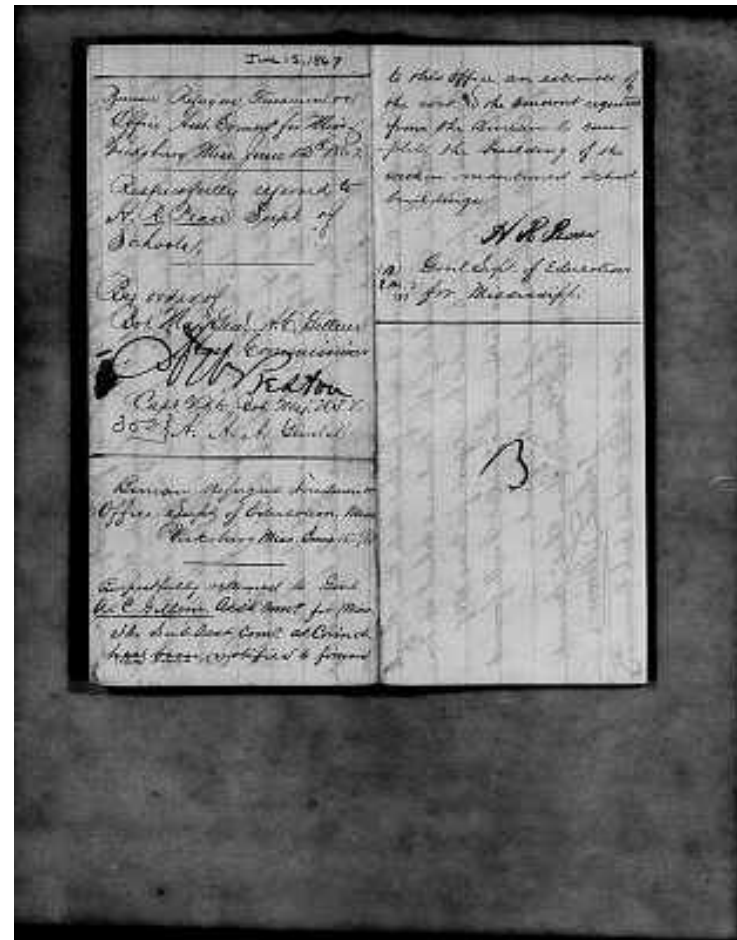 June 15, 1867
Bureau Refugees Freedmen &c
Office Asst Commr for Miss
Vicksburg Miss June 12th 1867
Respectfully referred to
H. R. Pease Supt of
Schools.
By order of
Bvt Maj Genl A. C. Gillem
Asst Commissioner
Preston
Capt V.R.C. Bvt Maj U.S.V.
A. A. A. Genl
Bureau Refugees Freedmen
Office Supt of Education, Miss
Vicksburg Miss. June 15
Respectfully returned to Genl
A. C. Gillem Asst Comr for Miss
The Sub Asst Comr at Corinth
has been notified to forward
to this office an estimate of
the cost & the amount required
from the Bureau to com-
plete the building of the
within mentioned school
buildings
H R Pease
Genl Supt. of Education
for Mississippi.
B